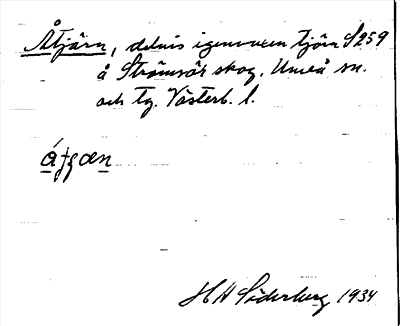 Åtjärn, delvis igenvuxen tjärn S259
å Strömsör skog. Umeå sn.
och tg. Västerb. l.
HH Söderberg 1934